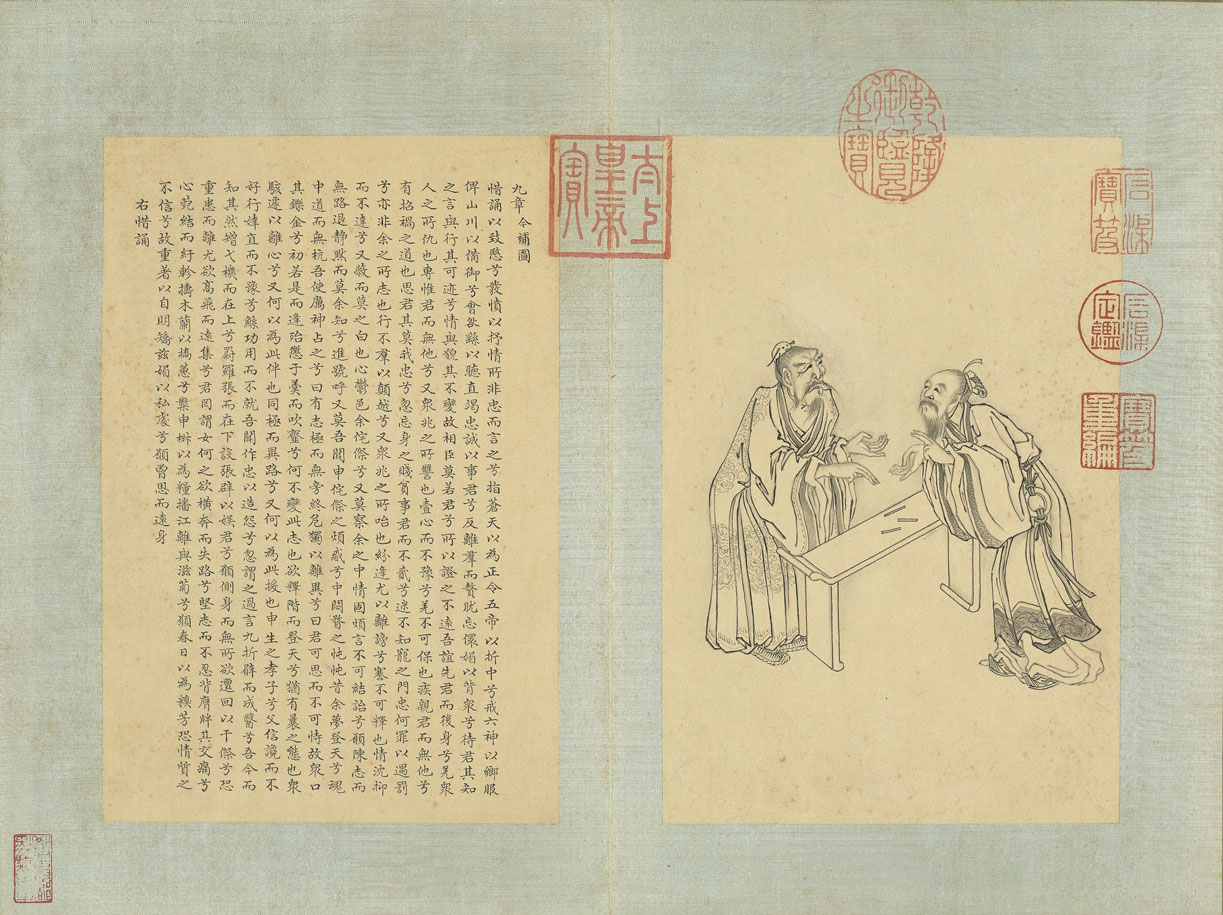 乾隆御覽之寶
石渠寶笈
石渠定鑑
寶笈重編
太上皇帝之寶
九章 今補圖
惜誦以致愍兮發憤以抒情所非忠而言之兮指蒼天以為正令五帝以折中兮戒六神以鄉服
俾山川以備御兮會咎繇以聽直竭忠誠以事君兮反離羣而贅肬忘儇媚以背衆兮待君其知
之言與行其可迹兮情與貌其不變故相臣莫若君兮所以證之不遠吾誼先君而後身兮羌衆
人之所仇也專惟君而無他兮又衆兆之所讐也壹心而不豫兮羌不可保也疾親君而無他兮
有招禍之道也思君其莫我忠兮忽忘身之賤貧事君而不貳兮迷不知寵之門忠何罪以遇罰
兮亦非余之所志也行不羣以顛越兮又衆兆之所咍也紛逢尤以離謗兮謇不可釋也情沈抑
而不達兮又蔽而莫之白也心鬱邑余侘傺兮又莫察余之中情固煩言不可結詒兮願陳志而
無路退静默而莫余知兮進號呼又莫吾聞申侘傺之煩惑兮中悶瞀之忳忳昔余夢登天兮魂
中道而無杭吾使厲神占之兮曰有志極而無旁終危獨以離異兮曰君可思而不可恃故衆口
其鑠金兮初若是而逢殆懲于羹而吹韲兮何不變此志也欲釋階而登天兮猶有曩之態也衆
駭遽以離心兮又何以為此伴也同極而異路兮又何以為此援也申生之孝子兮父信讒而不
好行婞直而不豫兮鯀功用而不就吾聞作忠以造怨兮忽謂之過言九折臂而成醫兮吾今而
知其然矰弋機而在上兮罻羅張而在下設張辟以娛君兮願側身而無所欲儃回以干傺兮恐
重患而離尤欲高飛而遠集兮君罔謂女何之欲橫奔而失路兮堅志而不忍背膺牉其交痛兮
心菀結而紆軫擣木蘭以撟蕙兮糳申椒以為糧播江離與滋菊兮願春日以為糗芳恐情質之
不信兮故重著以自明矯茲媚以私處兮願曾思而遠身
右惜誦